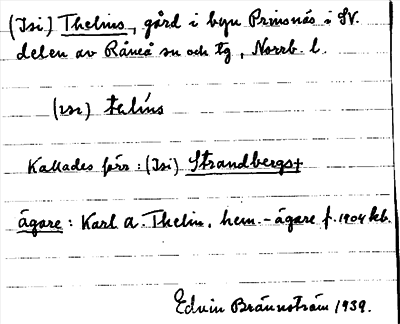 (Isi) Thelins, gård i byn Prinsnäs i SV.
delen av Råneå sn och tg, Norrb. l.
(ısı) telíns
Kallades förr: (Isi) Strandbergs+
ägare: Karl A. Thelin, hem.-ägare f. 1904 
Edvin Brännström 1939.